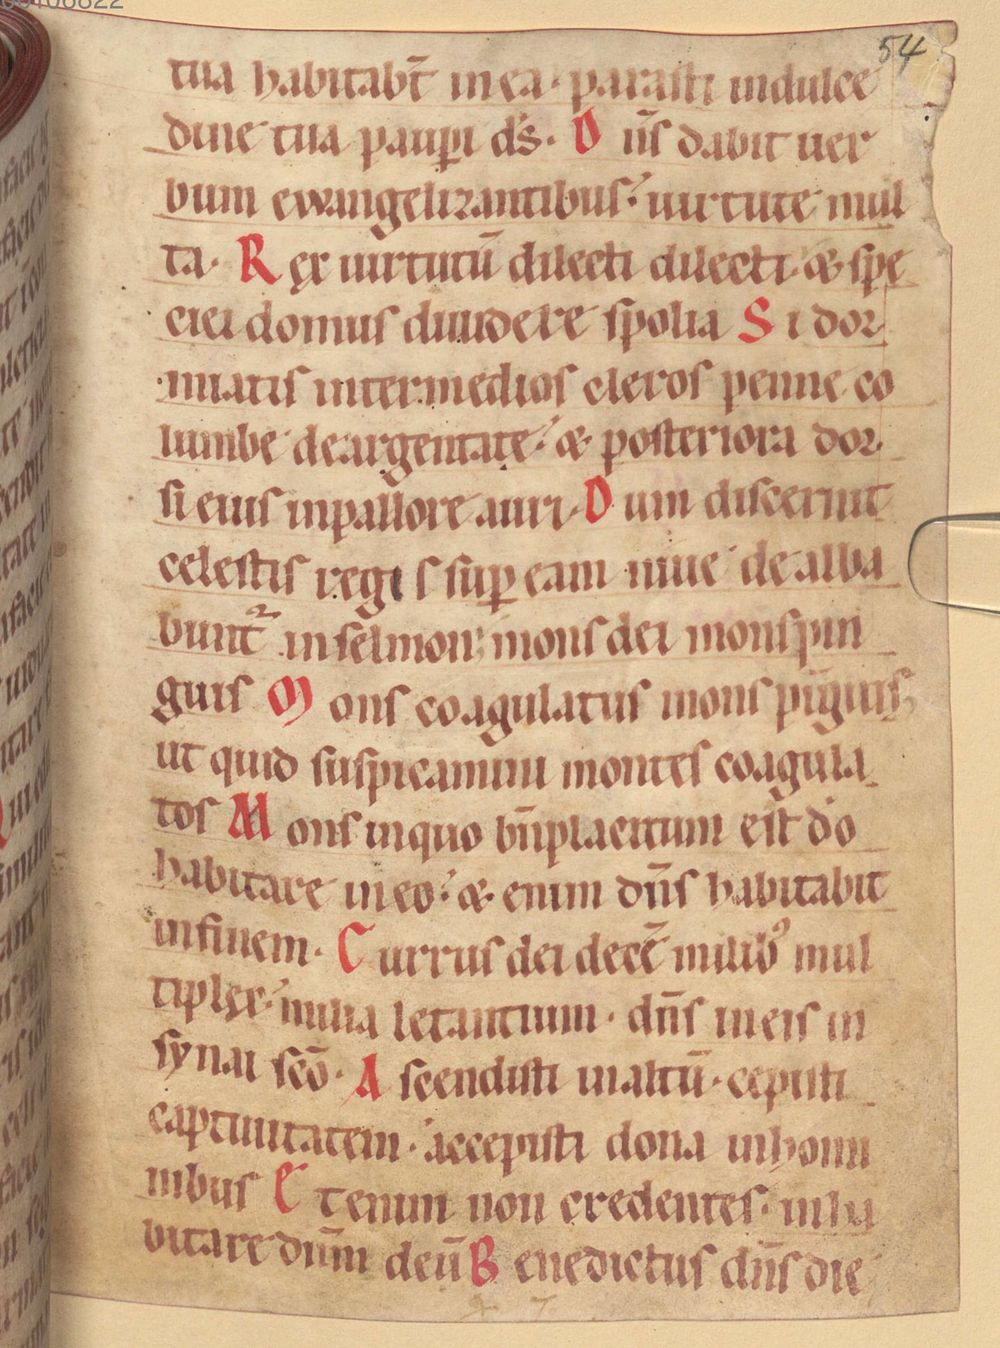 54
tua habitabt̄ in ea· parasti in dulce
dine tua paup̱i d̄s· D n̄s dabit uer
bum ewangelizantibus· uirtute mul
ta· R ex uirtutū dilecti dilecti· & spe
ciei domus diuidere spolia S i dor
miatis inter medios cleros penne co
lumbe deargentate· & posteriora dor
si eius in pallore auri· D um discernit
celestis reges sup̱ eam niue de alba
bunt᷑ in selmon; mons dei mons pin
guis M ons coagulatus mons pīguis;
ut quid suspicamini montes coagula
tos M ons in quo bn̄placitum est dō
habitare in eo· & enim dn̄s habitabit
in finem· C urrus dei decē milibꝰ mul
tiplex· milia letantium· dn̄s in eis in
synai scō· A scendisti in altū· cepisti
captiuitatem· accepisti dona in homi
nibus E tenim non credentes· inha
bitare dn̄m deū B enedictus dn̄s die